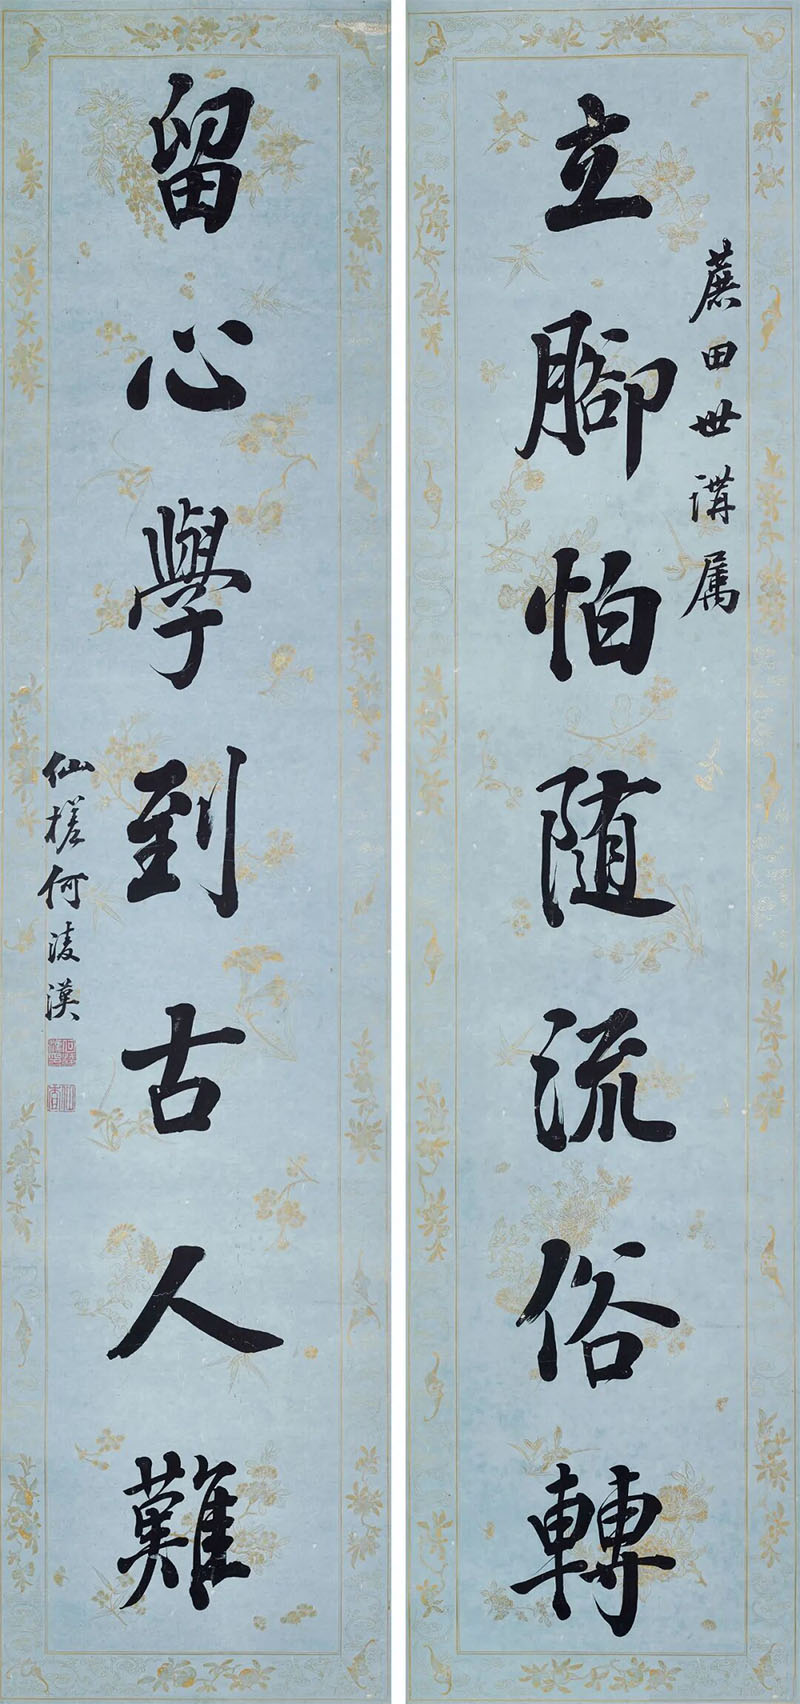 立腳怕随流俗轉
蔗田世講属
留心學到古人難
仙槎何凌漢